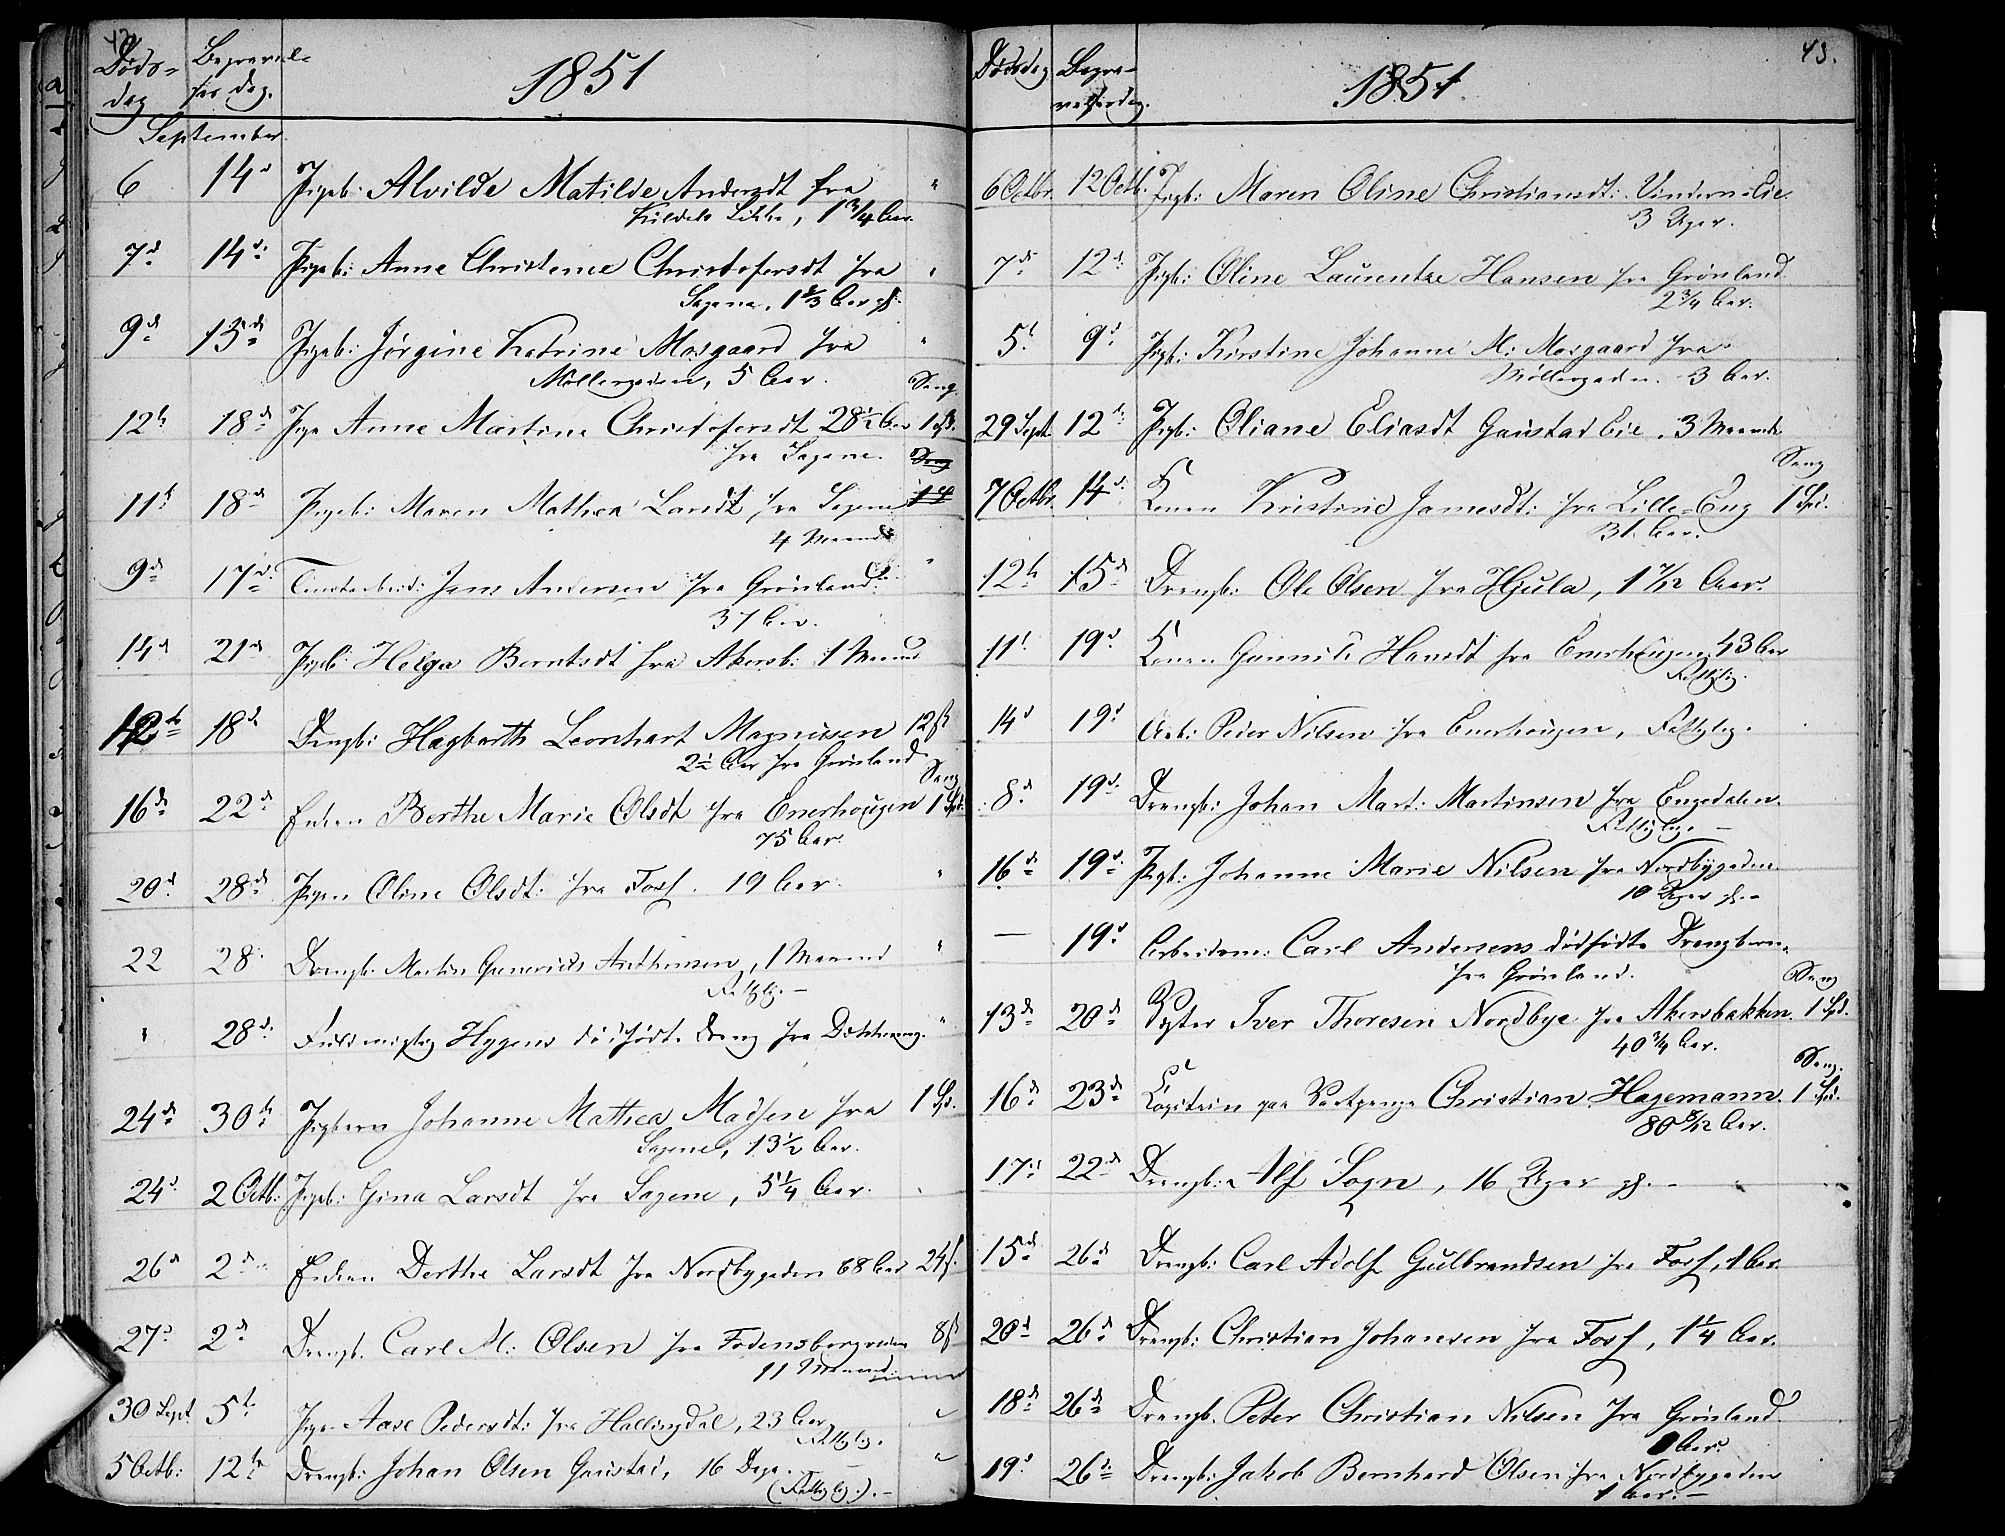 42.
Døds-
dag
Begravel-
ses dag.
1851
September.
6 14d Pigeb: Alvilde Matilde Andersdt fra
Lökke, 1 3/4 Aar.
7d 14d Pigeb: Anne Christence Christofersdt fra
Sagene, 1 2/3 Aar
9d 13d Pigeb: Jörgine Katrine Mosgaard fra
Möllergaden, 5 Aar.
Seng
12t 18d Pige Anne Martine Christofersdt 28½ Aar 1 Spd.
fra Sagene.
11t 18d Pigeb: Maren Mathea Larsdt fra Sagene
4 Maaned
9d 17d Jens Andersen fra Grönland
37 Aar.
14d 21d Pigeb: Helga Berntsdt fra Akersb: 1 Maaned
12t 18d Drengb: Hagbarth Leonhart Magnusen 12 s
2½ Aar fra Grönland
Seng
16d 22d Enken Berthe Marie Olsdt fra Enerhougen 1 Spd.
75 Aar.
20d 28d Pigen Oline Olsdt: fra Foss. 19 Aar.
22 28. Drengb. Martin Anthonsen, 1 Maaned
Fattiglig.
28d. Fuldmægtig Hygens dödfödte Dreng fra
24d 30t Pigebarn Johanne Mathea Madsen fra 1 Spd.
Sagene, 13½ Aar.
24d 2 Octb: Pigeb: Gina Larsdt fra Sagene, 5¼ Aar.
26d 2d Enken Dorthe Larsdt fra Nordbygaden 68 Aar 24 s.
27d 2d Drengb. Carl M: Olsen fra Fredensborgveien 8 s
11 Maaned
30 Sept. 5t Pige Aase Pedersdt: fra Hallingdal, 23 Aar
Fattiglig.
5 Octb: 12t Drengb: Johan Olsen Gaustad, 16 Dage.
(Fattiglig.).
43.
Dödsdag Begra-
velsesdag.
1851
6 Octbr. 12 Octb. Pigb: Maren Oline Christiansdt: Vindern Eie.
3 Uger.
7d 12d Pigb: Oline Laurentze Hansen fra Grönland.
2 3/4 Aar.
5t 9d Pigb: Kirstine Johanne M: Mosgaard fra
Möllergaden. 3 Aar.
29 Sept. 12t Pigb: Oliane Eliasdt Gaustad Eie. 3 Maaneder
Seng
7 Octbr. 14d Konen Kristine Jamesdt: fra Lille-Eng 1 Spd.
31. Aar.
12t 15d Drengb: Ole Olsen fra Hjula, 1 7/12 Aar.
11t 19d Konen Gunnild Hansdt fra Enerhougen. 43 Aar
Fattiglig.
14d 19d Arb: Peder Nilsen fra Enerhougen, Fattiglig.
8d 19d Drengb: Johan Mart: Martinsen fra Engedalen.
Fattiglig.
16d 19d Pigb: Johanne Marie Nilsen fra Nordbygaden
10 Uger
— 19d Arbeidsm: Carl Andersens dödfödte Drengbarn
fra Grönland.
Seng
13d 20d Iver Thoresen Nordbye fra Akersbakken. 1 Spd.
40 3/4 Aar.
Seng.
16d 23d Capitain paa Vartpenge Christian Hagemann. 1 Spd.
80 8/12 Aar.
17d 22d Drengb: Alf Sogn, 16 Uger
15d 26d Drengb: Carl Adolf Gulbrandsen fra Foss, 1 Aar.
20d 26d Drengb: Christian Johansen fra Foss, 1¼ Aar.
18d 26d Drengb. Peter Christian Nilsen fra Grönland
Aar.
19d 26d Drengb: Jakob Bernhard Olsen fra Nordbygaden
1 Aar.